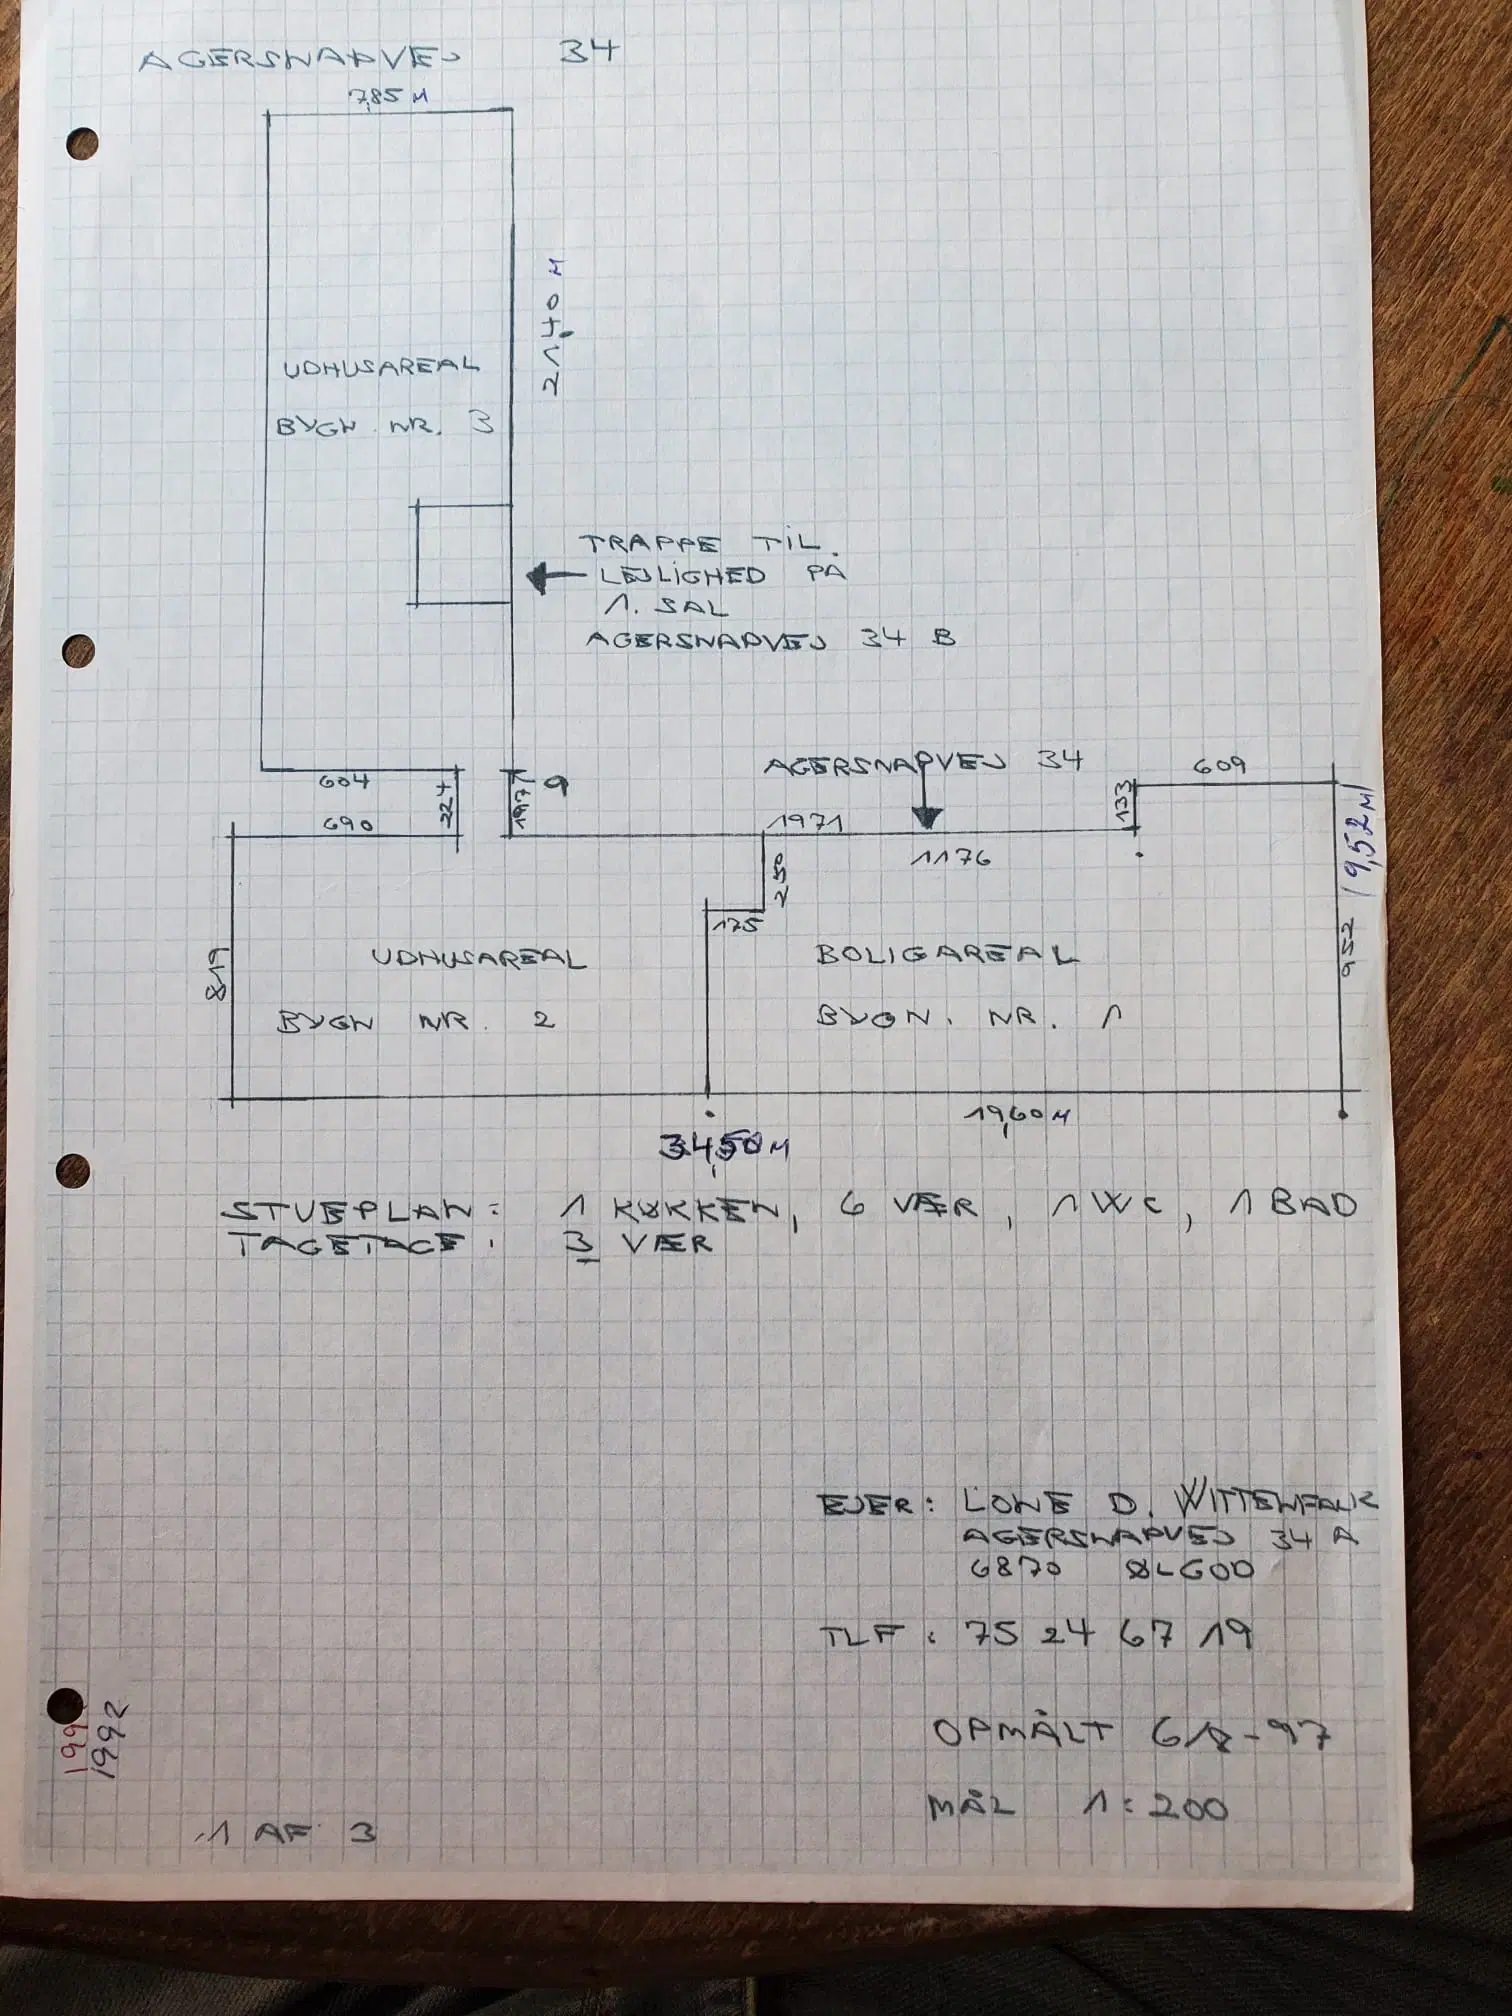 AGERSNAPVEJ 34
7,85 M
21,40 M
UDHUSAREAL
BYGN. NR. 3
TRAPPE TIL.
LEJLIGHED PA
1. SAL
AGERSNAPVEJ 34 B
AGERSNAPVEJ 34
604
224
197
9
609
133
690
1971
1176
9,52 M
250
175
819
952
UDHUSAREAL
BOLIGAREAL
BYGN NR. 2
BYGN. NR. 1
19,60 M
34,50 M
STUEPLAN: 1 KØKKEN, 6 VÆR, 1 WC, 1 BAD
TAGETAGE: 3 VÆR
EJER: LONE D. WITTENFALK
AGERSNAPVEJ 34 A
6870 ØLGOD
TLF: 75 24 67 19
OPMÅLT 6/8-97
MÅL 1:200
199
1992
1 AF 3